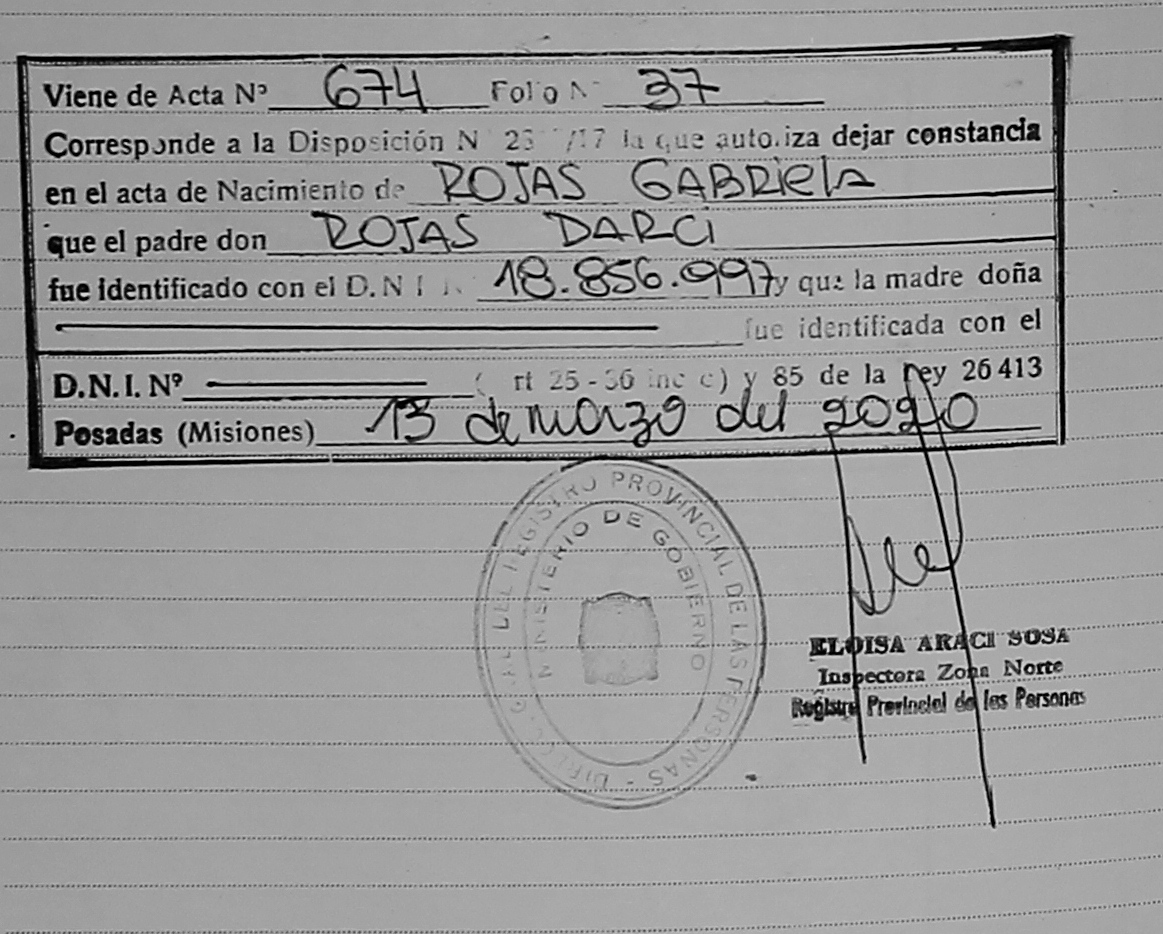 Viene de Acta Nº 674 Folio Nº 37
Corresponde a la Disposición N 23 /17 la que autoriza dejar constancia
en el acta de Nacimiento de ROJAS GABRIELA
que el padre don ROJAS DARCI
fue identificado con el D.N.I. 18.856.997 y que la madre doña
fue identificada con el
D.N.I. Nº ( rt 25 - 36 inc c) y 85 de la Ley 26 413
Posadas (Misiones) 13 de marzo del 2020
REGISTRO PROVINCIAL DE LAS PERSONAS -
MINISTERIO DE GOBIERNO
ELOISA ARACI SOSA
Inspectora Zona Norte
Registro Provincial de las Personas